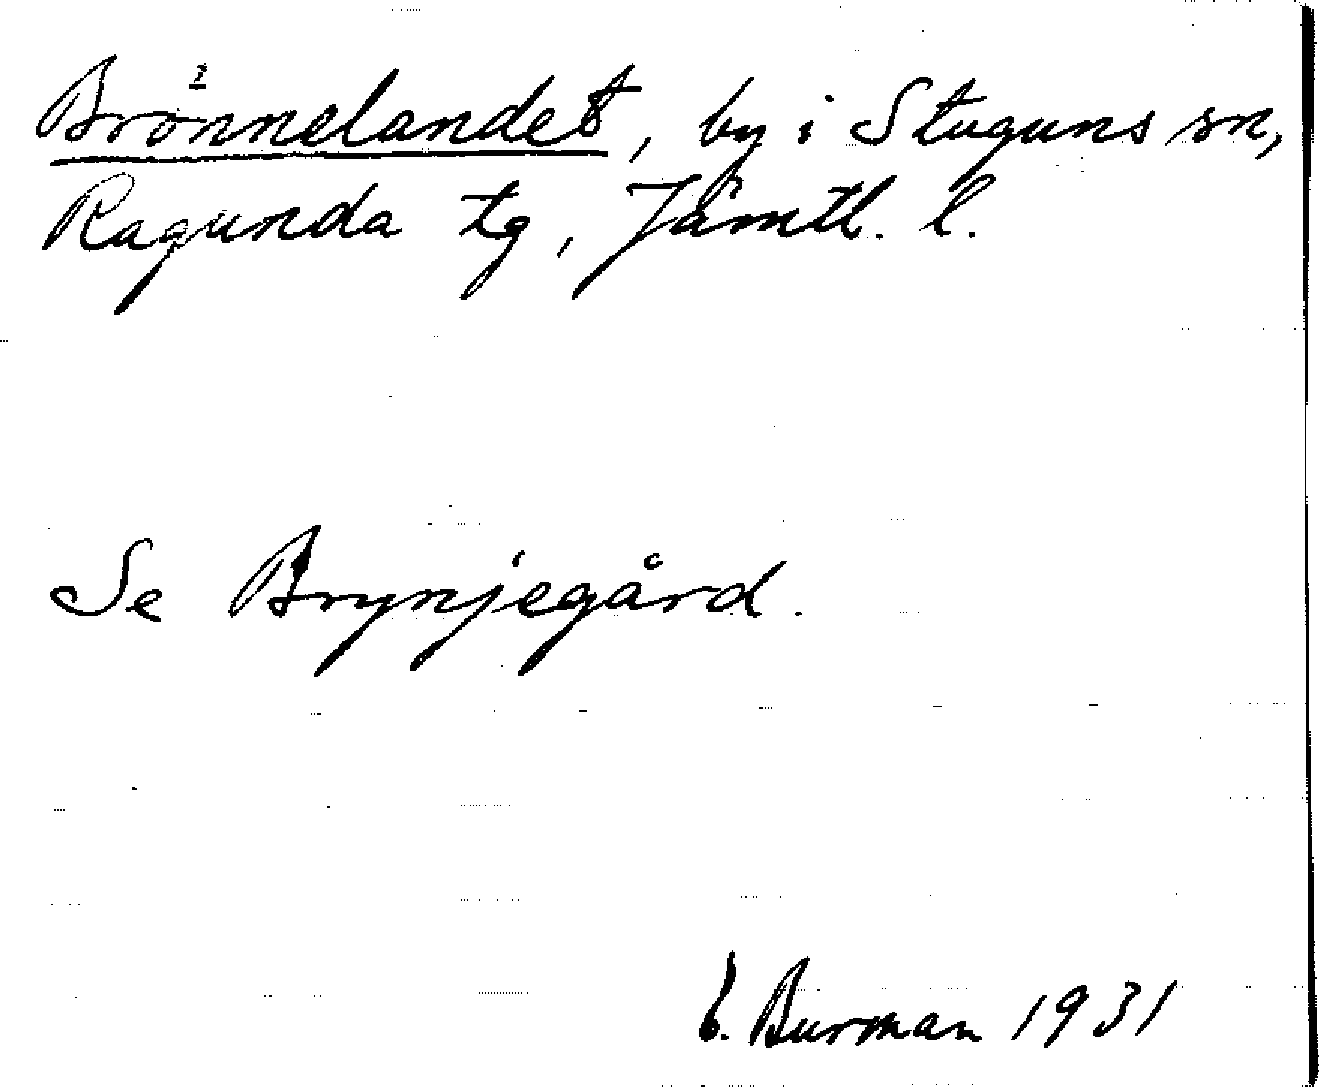 Brönnelandet, by i Stuguns sn,
Ragunda tg, Jämtl. l.
Se Brynjegård.
E. Burman 1931